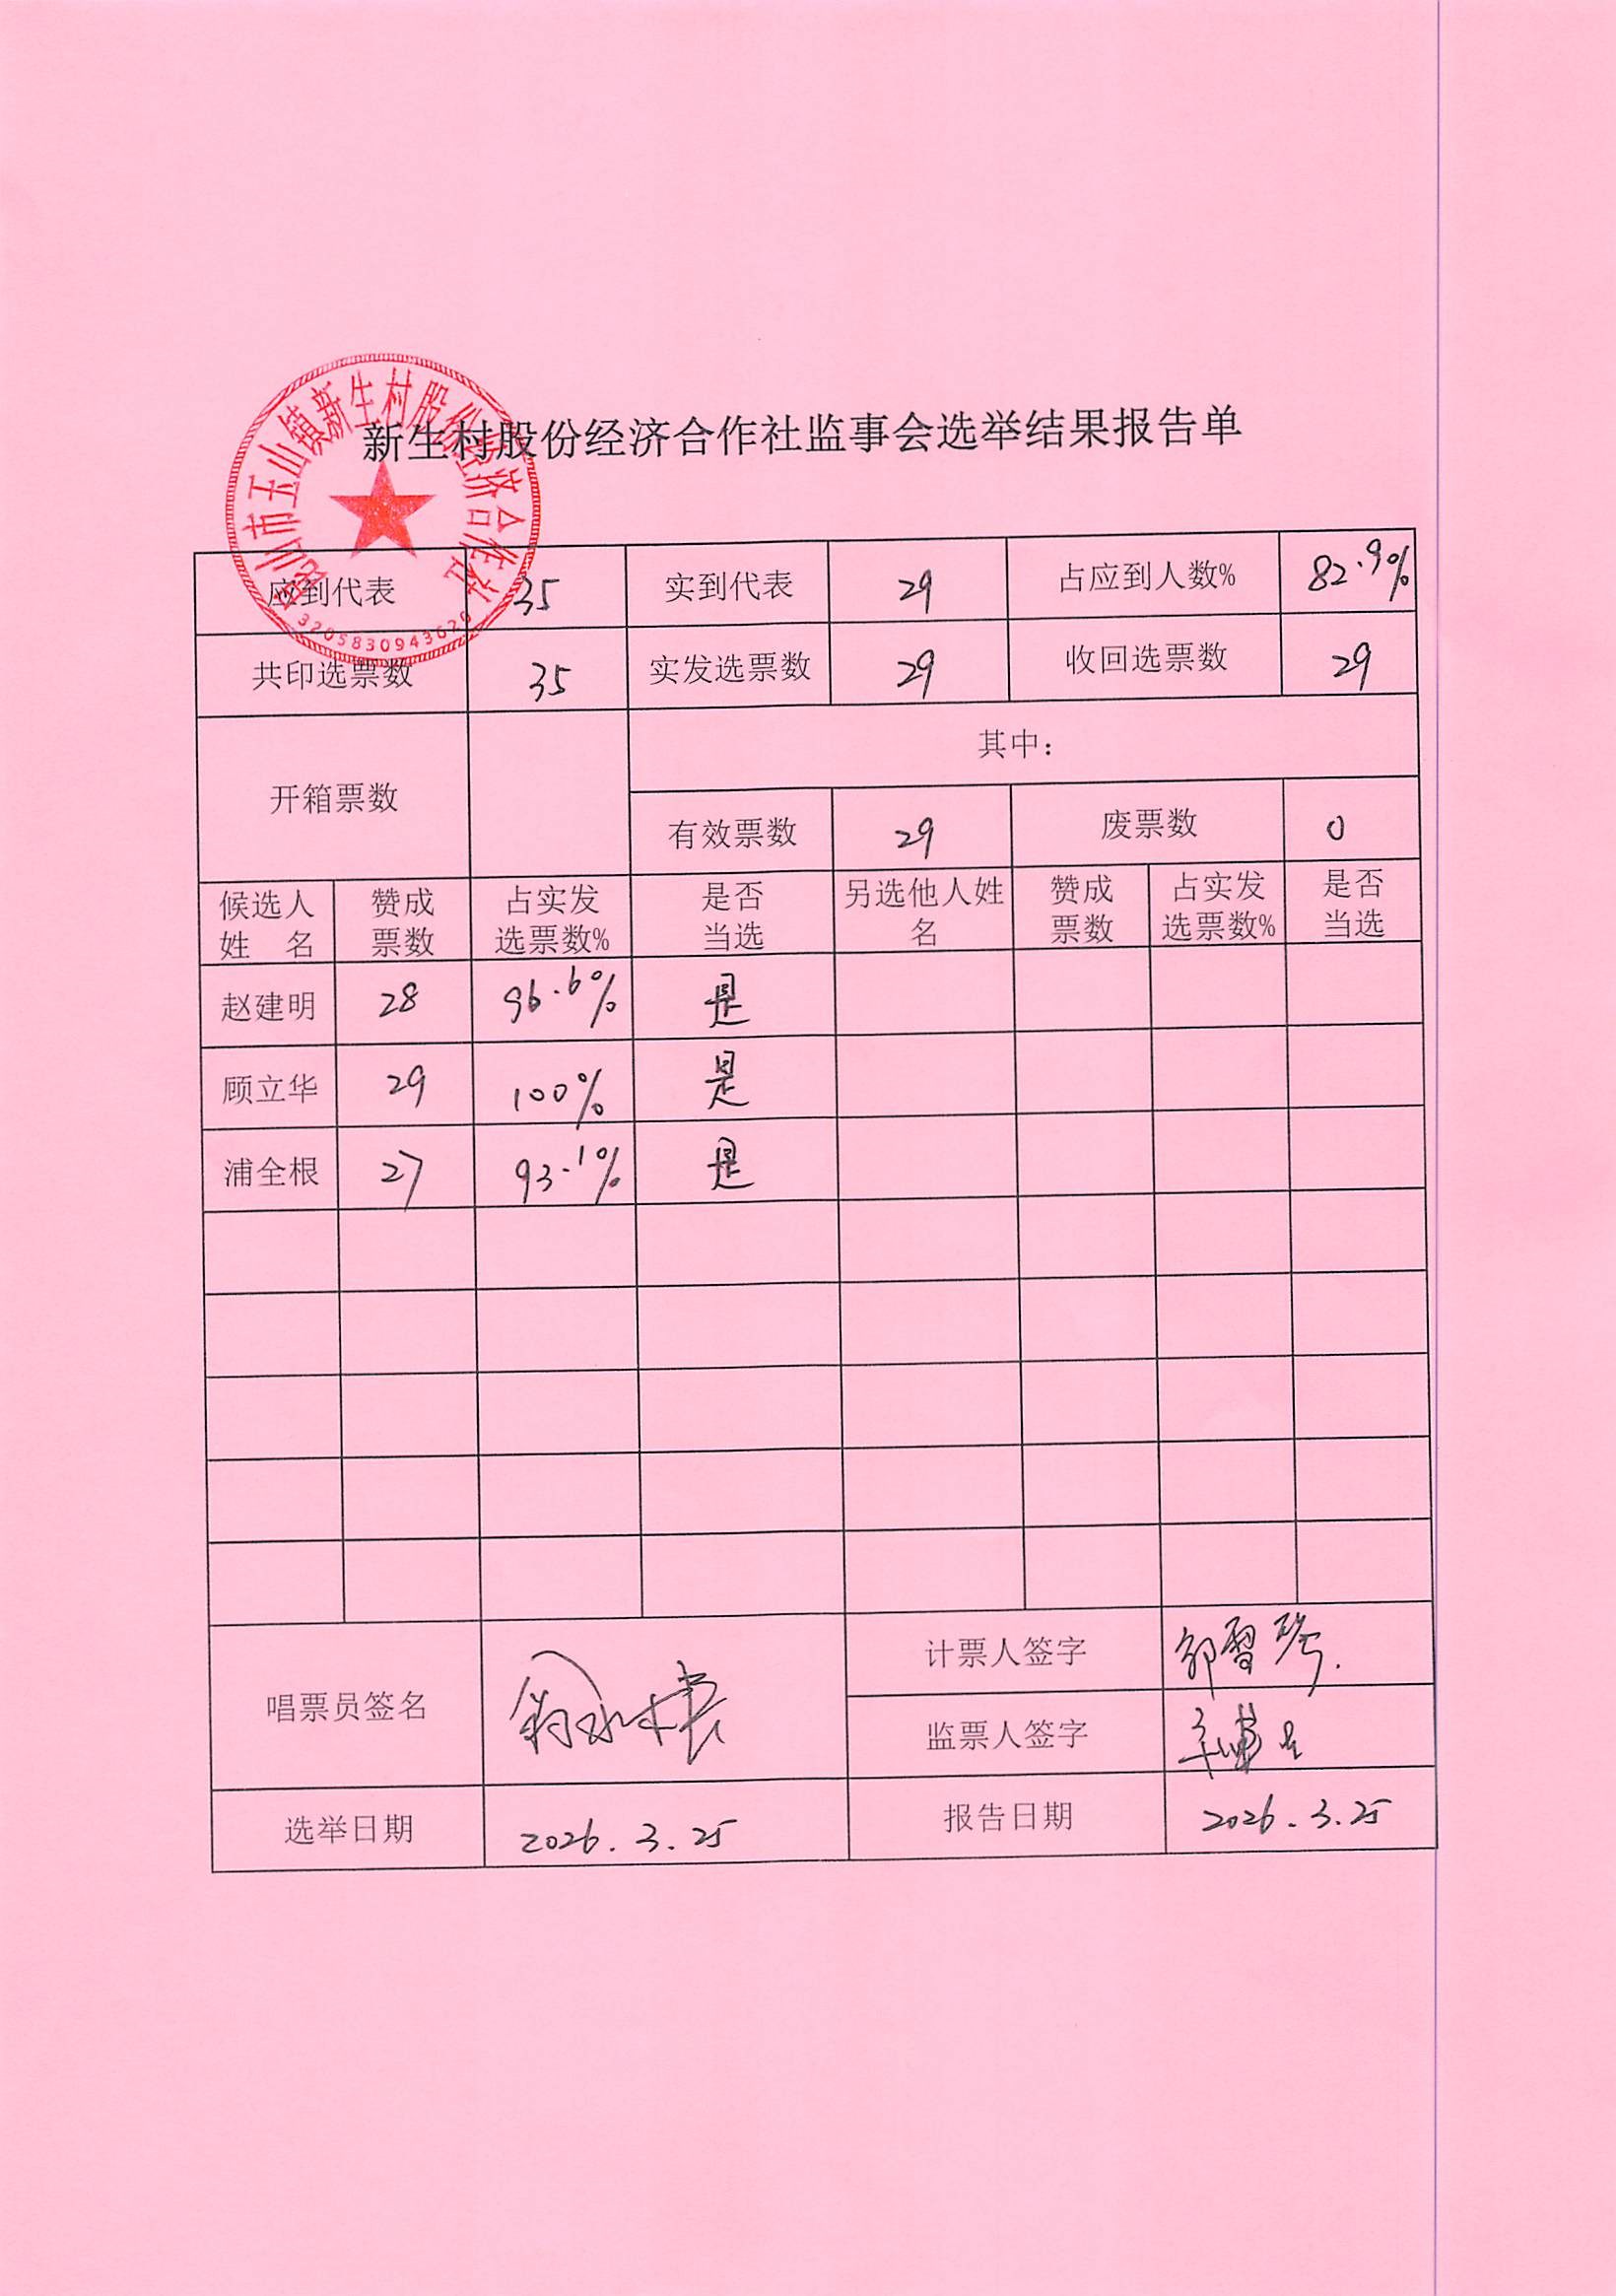 昆山市玉山镇新生村股份经济合作社
3205830943620
新生村股份经济合作社监事会选举结果报告单
应到代表 35 实到代表 29 占应到人数% 82.9%
共印选票数 35 实发选票数 29 收回选票数 29
开箱票数 其中：
有效票数 29 废票数 0
候选人姓 名 赞成票数 占实发选票数% 是否当选 另选他人姓名 赞成票数 占实发选票数% 是否当选
赵建明 28 96.6% 是
顾立华 29 100% 是
浦全根 27 93.1% 是
唱票员签名 计票人签字
监票人签字
选举日期 2026.3.25 报告日期 2026.3.25